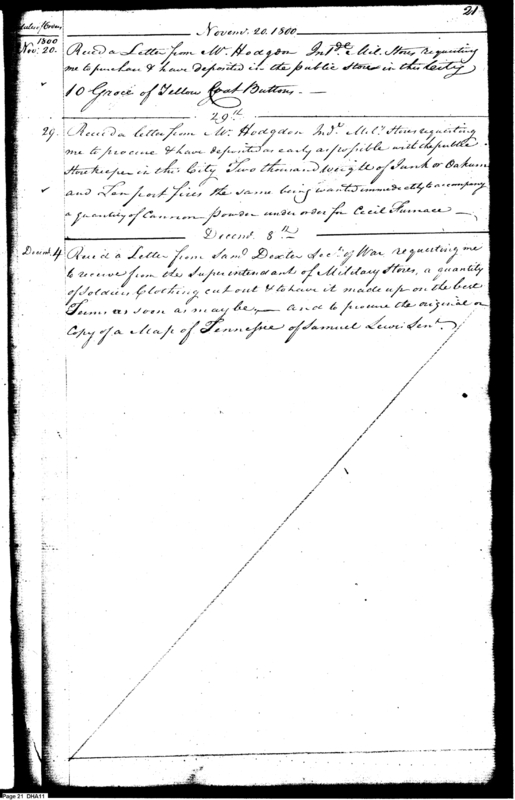 21
Novemr. 20. 1800
1800
Nov: 20. Recivd a Letter from Mr. Hodgdon Intde. Mil. Stores requesting
me to purchase & have deposited in the public Store in this City
10 Groce of Yellow Coat Buttons.
29th
29. Recivd a letter from Mr. Hodgdon Indt. Mily. Stores requesting
me to procure & have deposited as early as possible with the public
Storekeeper in this City Two thousand weight of Junk or Oakum
and Lanport fires the same being wanted immediately to accompany
a quantity of Cannon powder under order for Cecil Furnace
Decemr. 8th
Decemr. 4 Recivd a Letter from Saml. Dexter Secy. of War requesting me
to receive from the Superintendant of Military Stores, a quantity
of Soldiers Clothing cut out & to have it made up on the best
Terms as soon as may be, and to procure the original or
Copy of a Map of Tennessee of Samuel Lewis Senr.
Page 21 DHA11